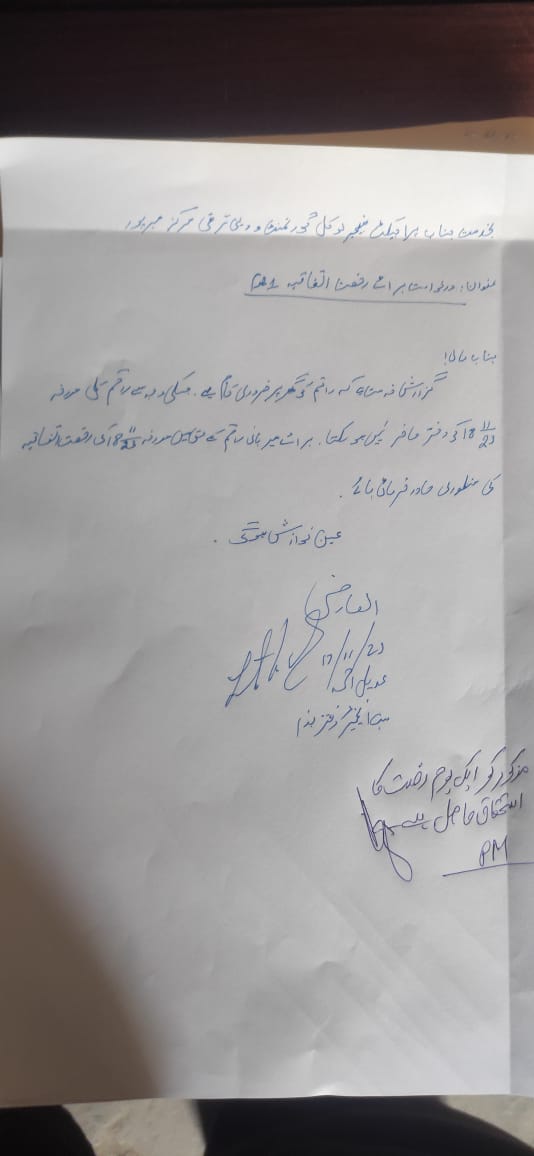 بخدمت جناب پراجیکٹ منیجر لوکل گورنمنٹ و دیہی ترقی مرکز میرپور
عنوان: درخواست برائے رخصت اتفاقیہ 1
جناب عالی!
گزارش خدمت ہے کہ راقم کو گھر پر ضروری کام ہے۔ جسکی وجہ سے راقم کل مورخہ
18 11/23 کو دفتر حاضر نہیں ہو سکتا۔ برائے مہربانی راقم کے حق میں مورخہ 18 11/23 کی رخصت اتفاقیہ
کی منظوری صادر فرمائی جائے۔
عین نوازش ہو گی۔
العارض
17/11/23
عدیل
سب انجینئر دفتر ہذا
مذکور کو ایک یوم رخصت کا
استحقاق حاصل ہے
PM